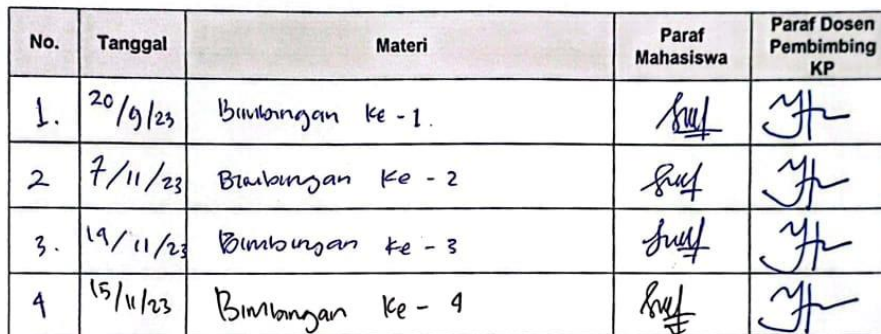 No. Tanggal Materi Paraf Mahasiswa Paraf Dosen Pembimbing KP
1. 20/9/23 Bimbingan ke - 1.
2 7/11/23 Bimbingan ke - 2
3. 19/11/23 Bimbingan ke - 3
4 15/11/23 Bimbingan ke - 4